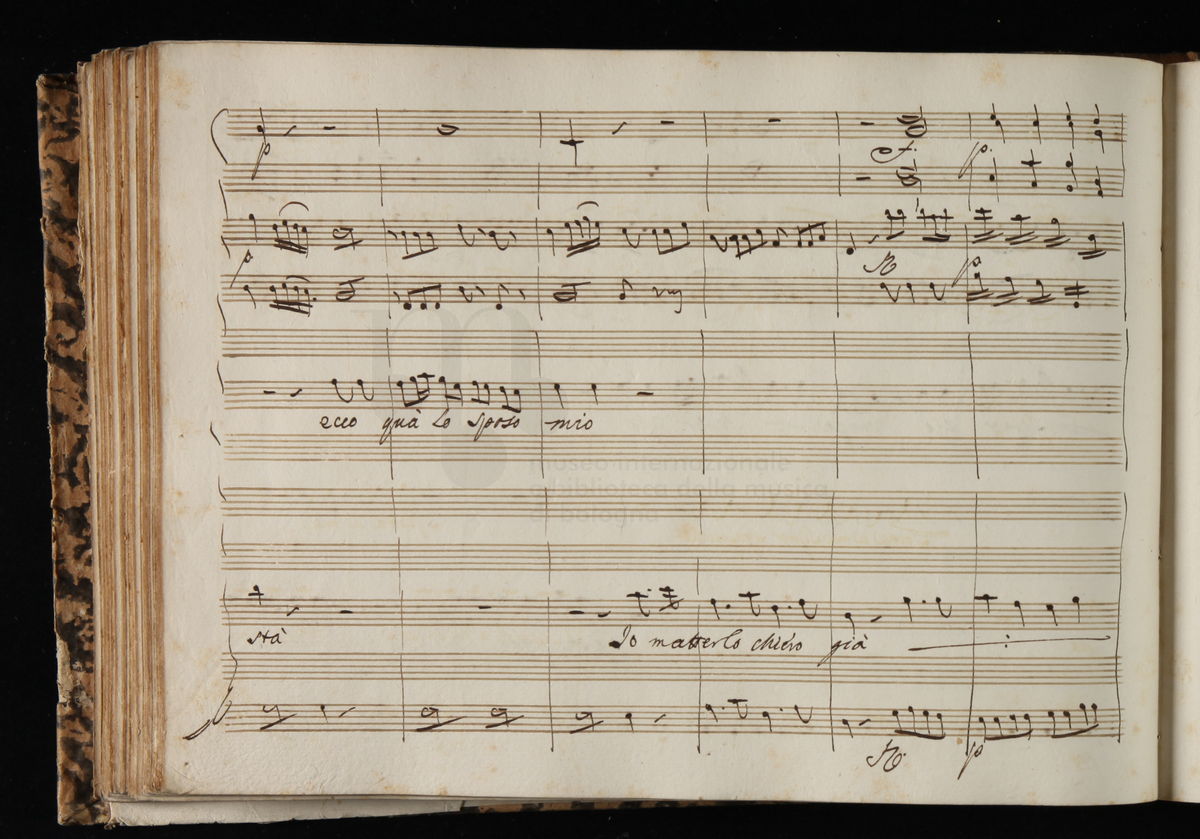 p
f. p.
p
f. p
ecco quà lo sposo mio
museo internazionale
e biblioteca della musica
di bologna
stà Io matterlo chiero già
f. p